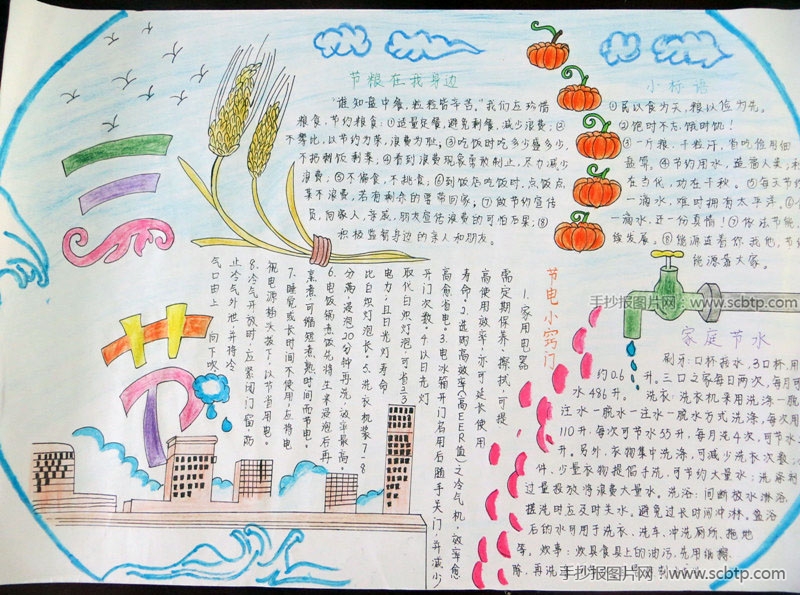 三
节
节粮在我身边
"谁知盘中餐,粒粒皆辛苦。"我们应珍惜
粮食,节约粮食:①适量定餐,避免剩餐,减少浪费;②
不攀比,以节约为荣,浪费为耻。③吃饭时吃多少盛多少,
不扔剩饭剩菜;④看到浪费现象勇敢制止,尽力减少
浪费;⑤不偏食,不挑食;⑥到饭店吃饭时,点饭点
菜不浪费,若有剩余的要带回家;⑦做节约宣传
员,向家人,亲戚,朋友宣传浪费的可怕后果;⑧
积极监督身边的亲人和朋友。
小标语
①民以食为天,粮以俭为先。
②饱时不忘饿时饥!
③一斤粮,千粒汗,
④节约用水,造福人类,利
在当代,功在千秋。
一滴水,难时拥有太平洋。
一滴水,还一份真情!⑦依法节能,
续发展。⑧能源连着你我他,节
能源靠大家。
节电小窍门
1.家用电器
需定期保养、擦拭,可提
高使用效率,亦可延长使用
寿命。2.选购高效率(高EER值)之冷气机,效率愈
高愈省电。3.电冰箱开门名用后随手关门,并减少
开门次数。4.以日光灯
取代白炽灯泡可省2/3
电力,且日光灯寿命
比白炽灯泡长。5.洗衣机装7-8
分满,浸泡20分钟再洗,效率最高。
6.电饭锅煮饭先将生米浸泡后再
烹煮可缩短煮熟时间而节电。
7.睡觉或长时间不使用,应将电
视电源插头拔下,以节省用电。
8.冷气开放时,应紧闭门窗,防
止冷气外泄,并将冷
气口由上向下吹
家庭节水
刷牙:口杯接水,3口杯,用
约0.6升。三口之家每日两次,每月可
水486升。洗衣:洗衣机采用洗涤一脱
注水一脱水一注水一脱水方式洗涤,每次用
110升,每次可节水55升,每月洗4次,可节水
升。另外,衣物集中洗涤,可减少洗衣次数,
件、少量衣物提倡手洗,可节约大量水;洗涤剂
过量投放将浪费大量水。洗浴:间断放水淋浴,
搓洗时应及时关水。避免过长时间冲淋。盆浴
后的水可用于洗衣、洗车、冲洗厕所、拖地
等。炊事:炊具食具上的油污,先用纸擦
除,再洗
手抄报图片网:www.scbtp.com
手抄报图片网:www.scbtp.com